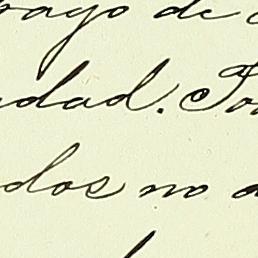 rago de
dad. To
dos no a